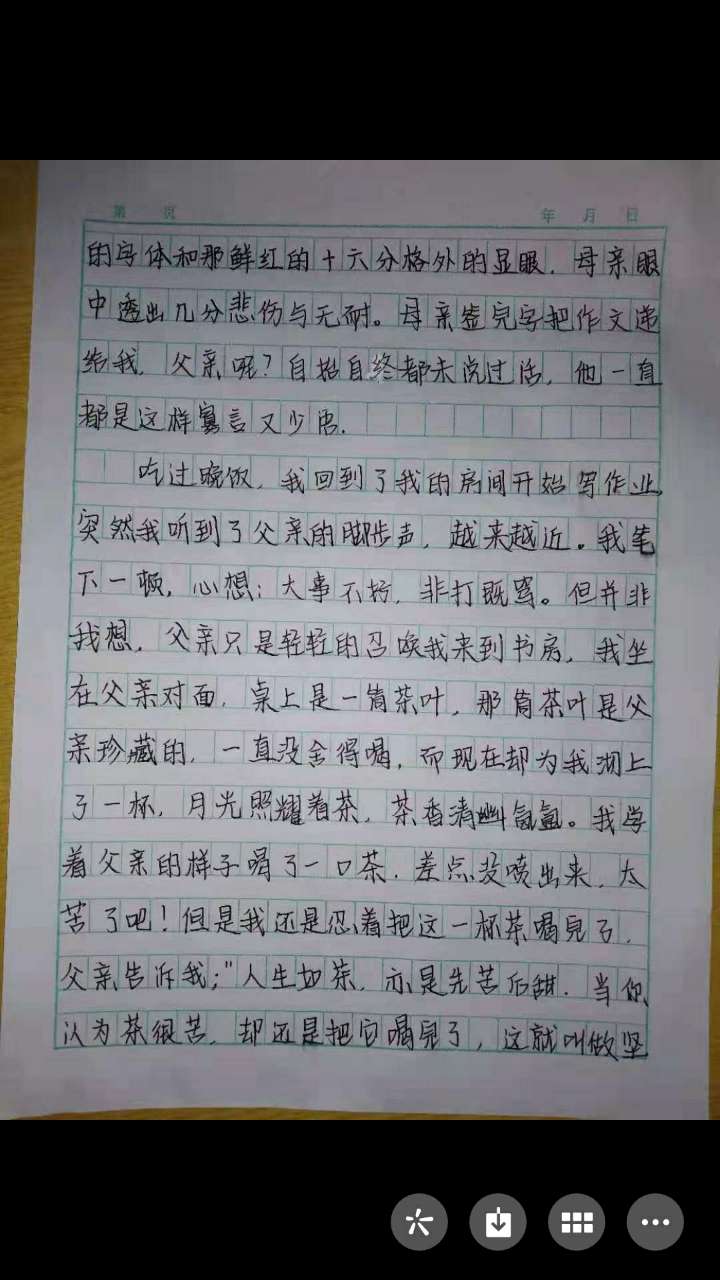 第 页 年 月 日
的字体和那鲜红的十六分格外的显眼．母亲眼
中透出几分悲伤与无耐。母亲签完字把作文递
给我．父亲呢？自始自终都未说过话，他一直
都是这样寡言又少语．
吃过晚饭，我回到了我的房间开始写作业，
突然我听到了父亲的脚步声，越来越近。我笔
下一顿，心想：大事不妙，非打既骂。但并非
我想，父亲只是轻轻的召唤我来到书房，我坐
在父亲对面．桌上是一筒茶叶，那筒茶叶是父
亲珍藏的，一直没舍得喝，而现在却为我沏上
了一杯，月光照耀着茶，茶香清幽氤氲。我学
着父亲的样子喝了一口茶．差点没喷出来，太
苦了吧！但是我还是忍着把这一杯茶喝完了．
父亲告诉我：“人生如茶，亦是先苦后甜．当你
认为茶很苦，却还是把它喝完了，这就叫做坚